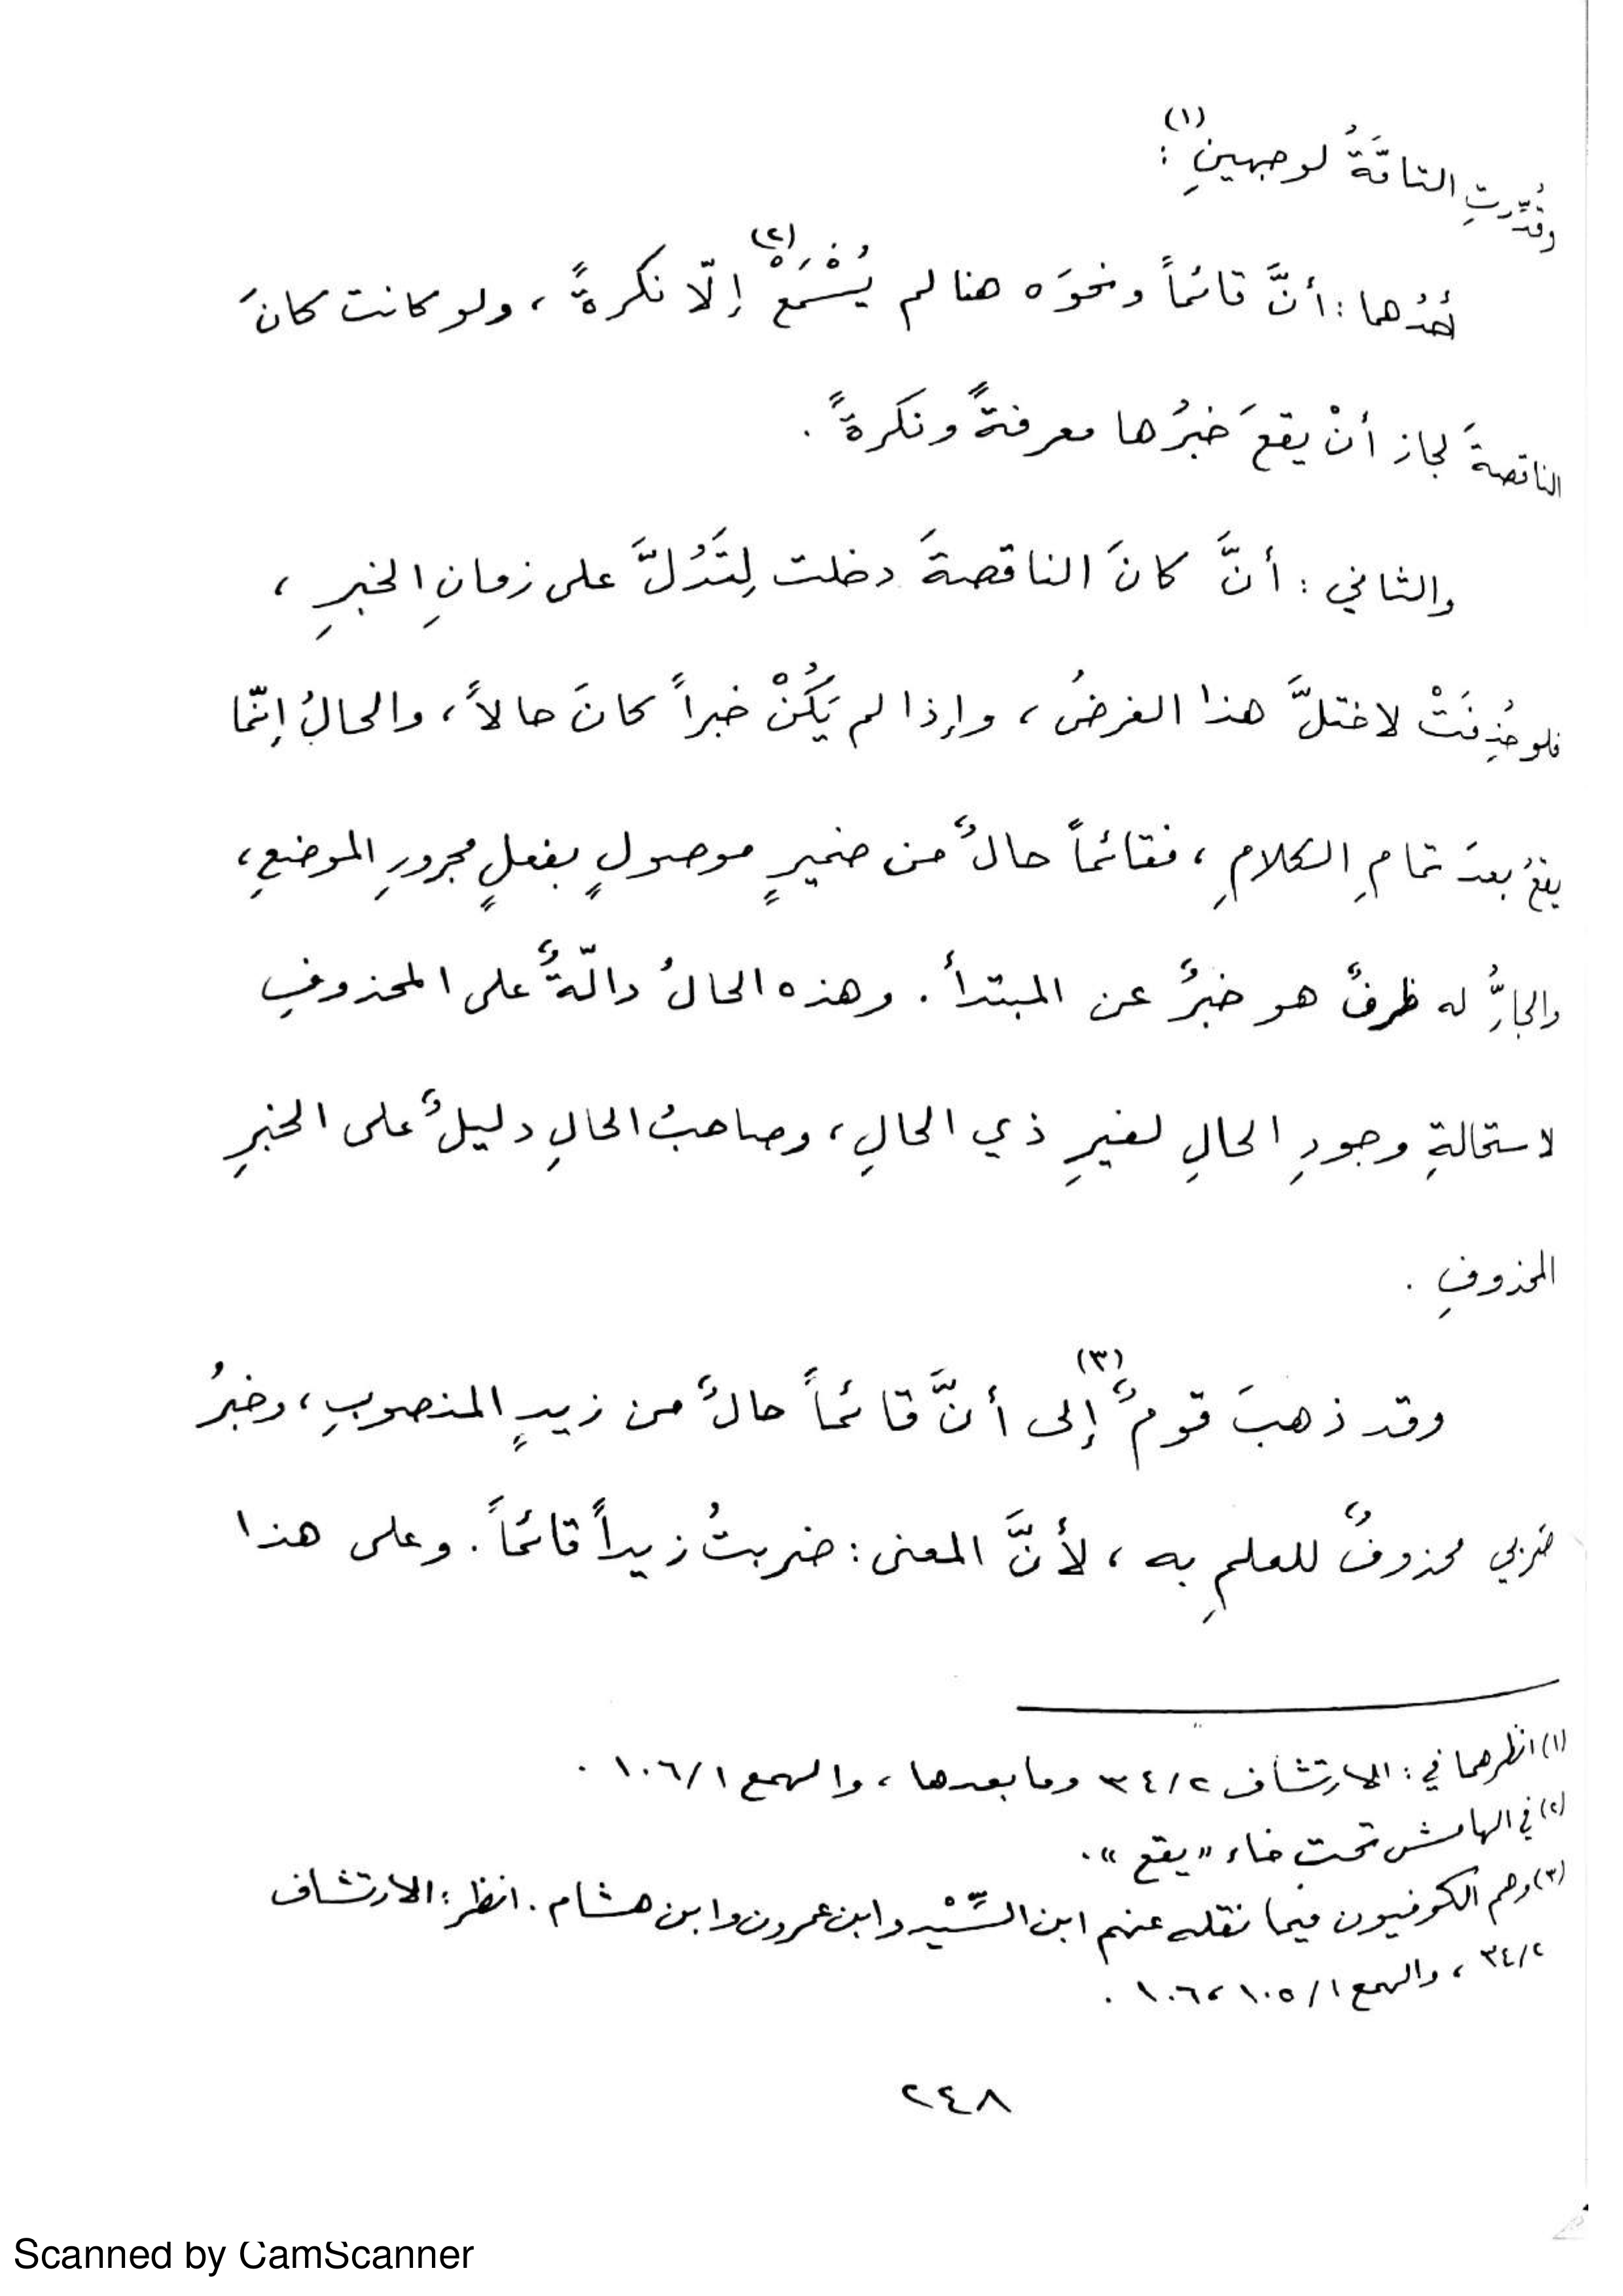 وقُدِّرتِ التامَّةُ لوجهينِ(١) :
أحدُهما : أنَّ قائماً ونحوَه هنا لم يُسْمَعْ(٢) إلّا نكرةً ، ولو كانت كانَ
الناقصةَ لجاز أنْ يقعَ خبرُها معرفةً ونكرةً .
والثاني : أنَّ كانَ الناقصةَ دخلت لِتَدُلَّ على زمانِ الخبرِ ،
فلو حُذِفَتْ لاختلَّ هذا الغرضُ ، وإذا لم يَكُنْ خبراً كانَ حالاً ، والحالُ إنّما
يقعُ بعدَ تمامِ الكلامِ ، فقائماً حالٌ من ضميرٍ موصولٍ بفعلٍ مجرورِ الموضعِ ،
والجارُّ له ظرفٌ هو خبرٌ عن المبتدأ . وهذه الحالُ دالّةٌ على المحذوفِ
لاستحالةِ وجودِ الحالِ لغيرِ ذي الحالِ ، وصاحبُ الحالِ دليلٌ على الخبرِ
المحذوفِ .
وقد ذهبَ قومٌ(٣) إلى أنَّ قائماً حالٌ من زيدٍ المنصوبِ ، وخبرُ
ضربي محذوفٌ للعلمِ به ، لأنَّ المعنى : ضربتُ زيداً قائماً . وعلى هذا
(١) انظرهما في : الارتشاف ٣٤/٢ وما بعدها ، والهمع ١٠٦/١ .
(٢) في الهامش تحت خاء « يقع » .
(٣) وهم الكوفيون فيما نقله عنهم ابن السِّيْد وابن عمرون وابن هشام . انظر : الارتشاف
٣٤/٢ ، والهمع ١٠٥/١ ، ١٠٦ .
٢٤٨
Scanned by CamScanner